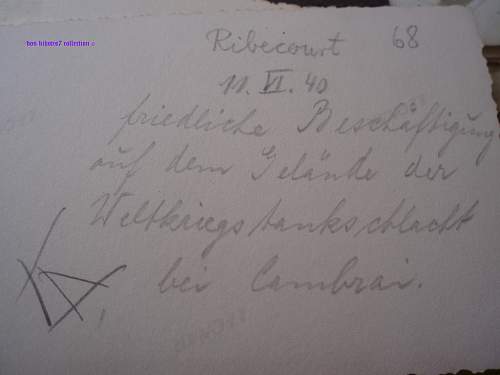 Ribecourt 68
11. VI. 40
friedliche Beschäftigung
auf dem Gelände der
Weltkriegstankschlacht
bei Cambrai.